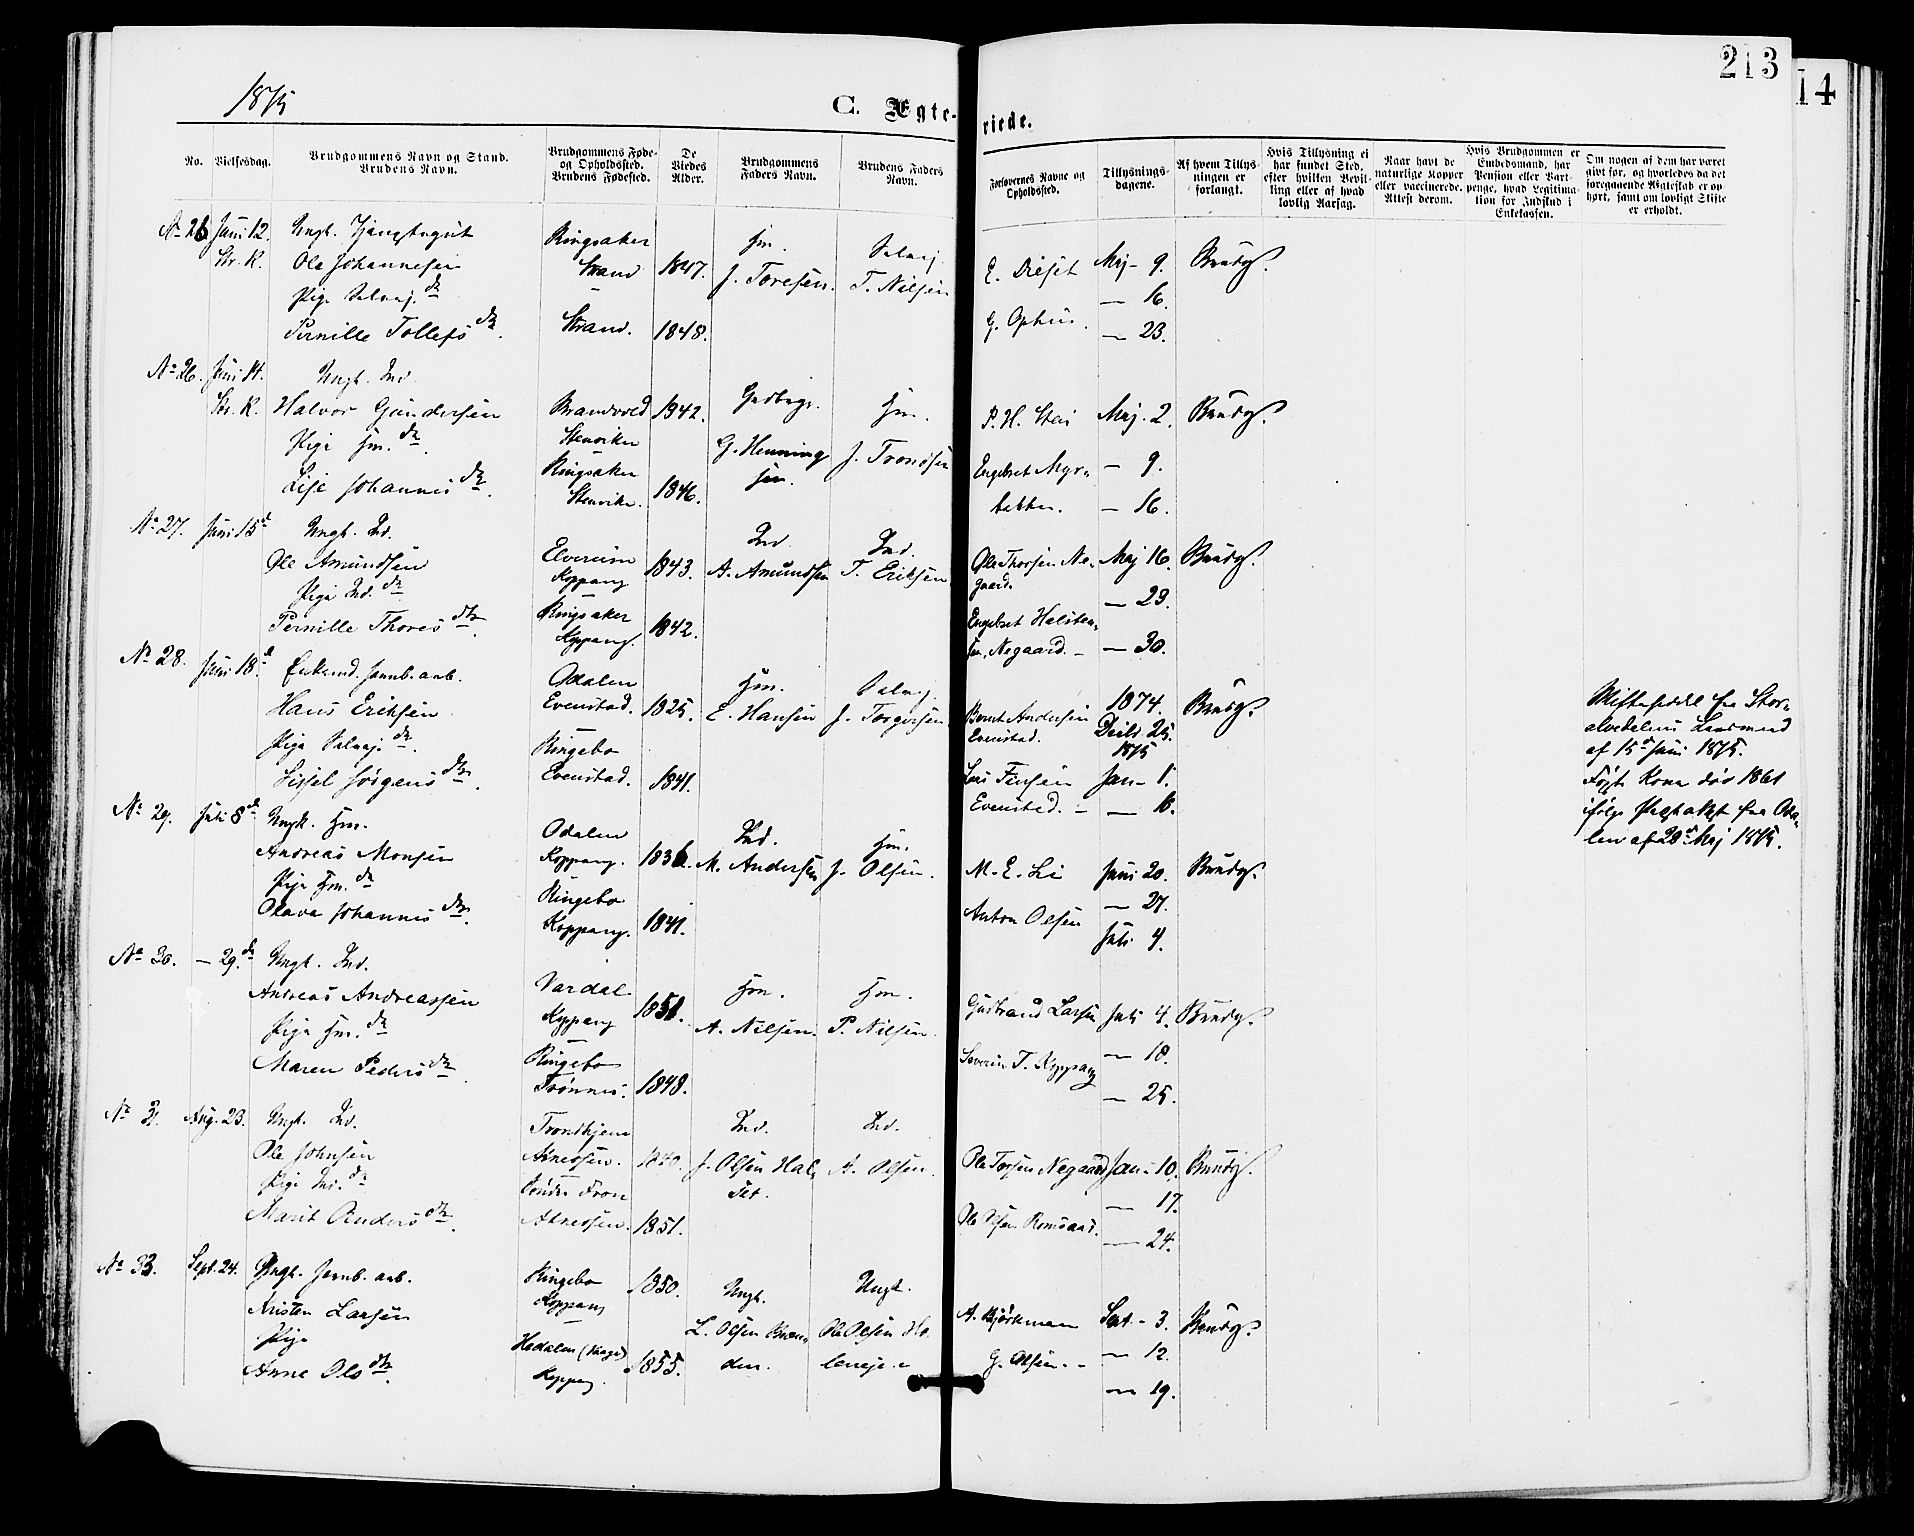 213
14
1875
C. Ægte-
viede.
No.
Vielsesdag.
Brudgommens Navn og Stand.
Brudens Navn.
Brudgommens Føde-
og Opholdssted.
Brudens Fødested.
De
Viedes
Alder.
Brudgommens
Faders Navn.
Brudens Faders
Navn.
Forlovernes Navne og
Opholdssted.
Tillysnings-
dagene.
Af hvem Tillys-
ningen er
forlangt.
Hvis Tillysning ei
har fundet Sted,
efter hvilken Bevil-
ling eller af hvad
lovlig Aarsag.
Naar havt de
naturlige Kopper
eller vaccinerede.
Attest derom.
Hvis Brudgommen er
Embedsmand, har
Pension eller Vart-
penge, hvad Legitima-
tion for Indskud i
Enkekassen.
Om nogen af dem har været
givt før, og hvorledes da det
foregaaende Ægteskab er op-
hørt, samt om lovligt Skifte
er erholdt.
No 26 Juni 12. Ungk.
Str. K. Ole Johannesen
Pige Selvej. dr
Pernille Tollefs dr.
Ringsaker
Strand 1847.
Strand. 1848.
Hm.
J. Toresen.
Selvej.
T. Nilsen
E. Dieset
G. Ophus.
Maj - 9.
— 16.
— 23.
Brudg.
No 26. Juni 14. Ungk. Ind.
Str. K. Halvor Gundersen
Pige Hm. dr.
Lise Johannes dr.
Brandvold 1842.
Stenviken
Ringsaker
Stenviken. 1846.
Gudbrgr.
G. Henning
sen.
Hm.
J. Tronsen
P. H. Stai
Engebret Myr-
bakken.
Maj. 2.
— 9.
— 16.
Brudg.
No 27. Juni 15 d Ungk. Ind.
Ole Amundsen
Pige Ind. dr
Pernille Thores dtr.
Elverum
Koppang 1843.
Ringsaker
Koppang. 1842.
Ind.
A. Amundsen
Ind.
T. Eriksen
Ole Thorsen Ne-
gaard.
Engebret Halsten-
sen, Negaard. -
Maj 16.
— 23.
— 30.
Brudg.
No 28. Juni 18. d Enkemd. Jernb. arb.
Hans Eriksen
Pige Selvej. dr.
Sissel Jørgens dtr.
Odalen
Evenstad. 1825.
Ringebo
Evenstad. 1841.
Hm.
E. Hansen
Selvej.
J. Torgersen
Bernt Andersen
Evenstad.
Lars Finsen
Evenstad. -
1874.
Decbr. 25.
1875
Jan - 1.
— 16.
Brudg.
Skifteseddel fra Stor-
elvedalens Lensmand
af 15d Juni 1875.
Første Kone død 1861
ifølge Præsteattest fra Oda-
len af 20d Maj 1875.
No 29. Juli 8 d Ungk. Hm.
Andreas Monsen
Pige Hm. dr
Olava Johannes dtr.
Odalen
Koppang. 1836.
Ringebo
Koppang. 1841.
Ind.
M. Andersen
Hm.
J. Olsen.
M. E. Li
Anton Olsen
Juni 20.
— 27.
Juli 4.
Brudg.
No 30. — 29. de Ungk. Ind.
Andreas Andreassen
Pige Hm. dr
Maren Peders dr.
Vardal
Koppang 1851.
Ringebo
Trønnes. 1848.
Hm.
A. Nilsen.
Hm.
P. Nilsen.
Gudbrand Larsen
Severin T. Koppang
Juli 4.
— 18.
— 25.
Brudg.
No 31. Aug. 23. Ungk. Ind.
Ole Johnsen
Pige Ind. dr
Marit Anders dtr.
Trondhjem
Atneosen. 1840.
Søndre Fron
Atneosen. 1851.
Ind.
J. Olsen Hal-
set.
Ind.
A. Olsen.
Ole Torsen Negaard
Ole Olsen Romsaas.
Jan - 10.
— 17.
— 24.
Brudg.
No 33. Sept. 24. Ungk. Jernb. arb.
Kristen Larsen
Pige
Anne Ols dtr.
Ringebo 1850.
Koppang
Hedalen (Vaage)
Koppang. 1855.
Ungk.
L. Olsen Bræn-
den.
Ungk.
Ole Olsen
A. Bjørkman
G. Olsen. -
Sept. - 3.
— 12.
— 19.
Brudg.